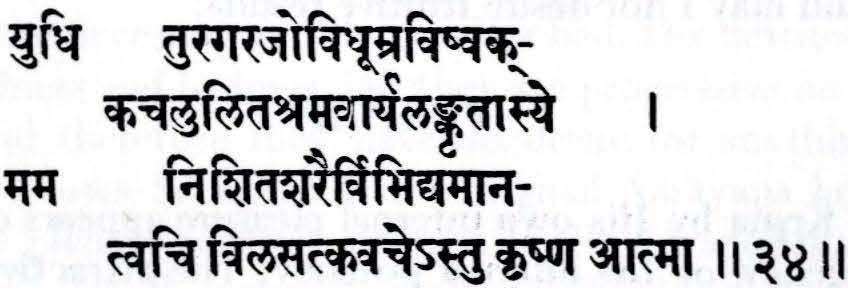 युधि तुरगरजोविधूम्रविष्वक्-
कचलुलितश्रमवार्यलङ्कृतास्ये ।
मम निशितशरैर्विभिद्यमान-
त्वचि विलसत्कवचेऽस्तु कृष्ण आत्मा ॥ ३४ ॥